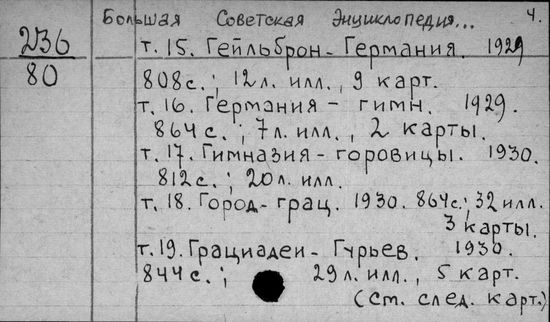 Большая Советская Энциклопедия... 4.
236
80
т. 15. Гейльброн- Германия. 1929
808с.; 12л. илл., 9 карт.
т. 16. Германия - гимн. 1929.
864с.; 7л. илл., 2 карты.
т. 17. Гимназия - горовицы. 1930.
812с.; 20л. илл.
т. 18. Город- грац. 1930. 864с.; 32 илл.
3 карты.
т. 19. Грациадеи- Гурьев. 1930.
844с.; 29 л. илл., 5 карт.
(ст. след. карт.)